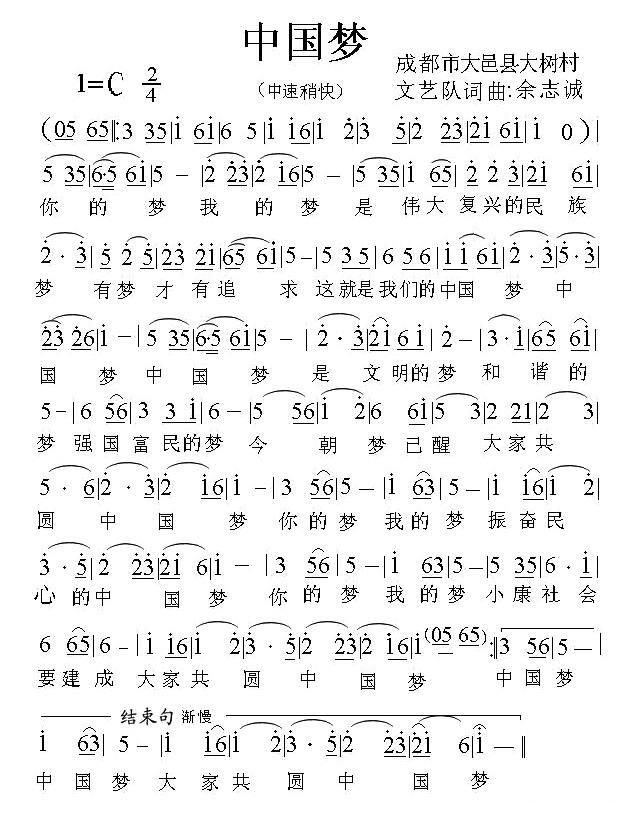 中国梦
1=C 2/4
（中速稍快）
成都市大邑县大树村
文艺队词曲:余志诚
(05 65‖:3 35|1 61|6 5|1 16|1 2|3 5|2 23|21 61 0)|
5 35|6·5 61|5 -|2 23|2 16|5 -|5 35|1 65|2 2 3|21 61|
你的梦我的梦是伟大复兴的民族
2·3|5 2 5|23 21|65 61|5-|5 3 5|6 5 6|1 1 61|2·3|5·3|
梦有梦才有追求这就是我们的中国梦中
23 26|1 -|5 35|6·5 61|5 -|2·3|26 61|2-|3·1|65 65|
国梦中国梦是文明的梦和谐的
5-|6 56|3 3 1|6-|5 56|1 2|6 61|5 2 21|2 3|
梦强国富民的梦今朝梦已醒大家共
5·6|2·3|2 16|1 -|3 56|5-|1 63|5-|1 2|
圆中国梦你的梦我的梦振奋民
3·5|2 23|21 61|1 -|3 56|5-|1 63|5-|5 35|6·1|
心的中国梦你的梦我的梦小康社会
6 65|6-|1 16|1 2|3·5|2 23|2 16|1(05 65):‖3 56|5-|
要建成大家共圆中国梦中国梦
结束句 渐慢
1 63|5-|1 16|1 2|3·5|2 23|21 6|1-‖
中国梦大家共圆中国梦